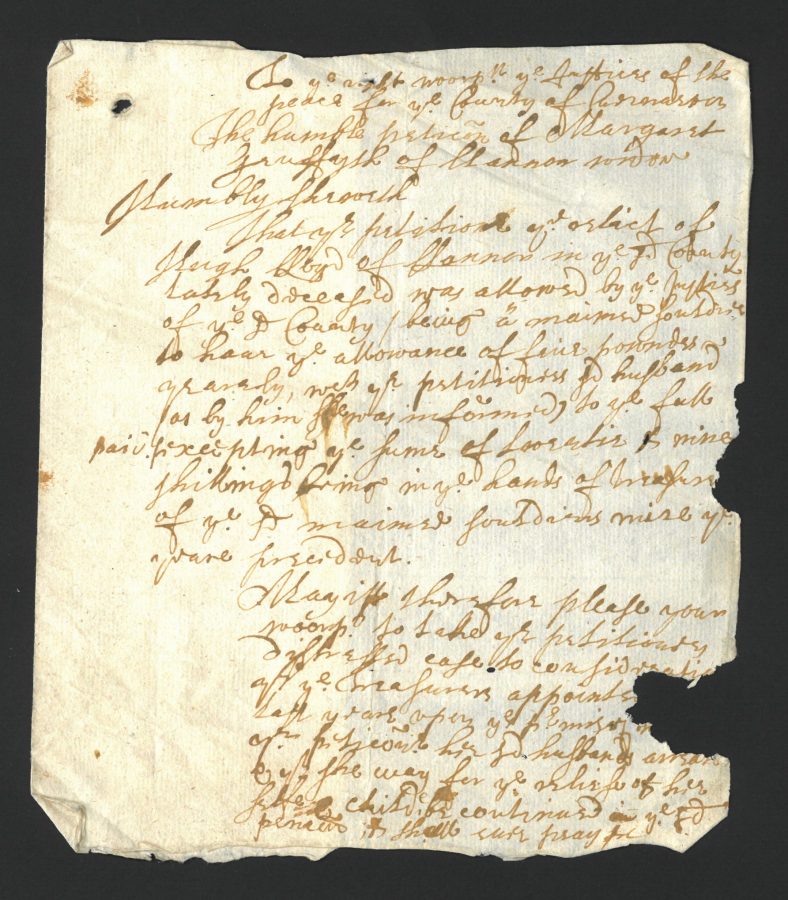 To ye right worpll ye Justices of the
peace for ye County of Carnarvon
The humble peticon of Margaret
Gruffyth of Llannor widow
Humbly sheweth
That yr petitionr ye relict of
Hugh Lloyd of Llannor in ye sd County
lately deceased was allowed by ye Justices
of ye sd County (being a maimed souldier
to have ye allowance of five poundes
yearely, wch yr petitioners sd husband
(as by him shee was informed) to ye full
paid. excepting ye sume of & nine
shillings being in ye hands of Treasurer
of ye sd maimed souldiers mise ye
yeare precedent.
May itt therefore please your
worpps to take yr petitioners
distressed case to consideratio
yt ye Treasurers appointed
last yeare upon ye
yr peticonr her sd husbands arrear
& yt she may for ye reliefe of her
selfe & child be continued in ye sd
pencon & shall ever pray &c